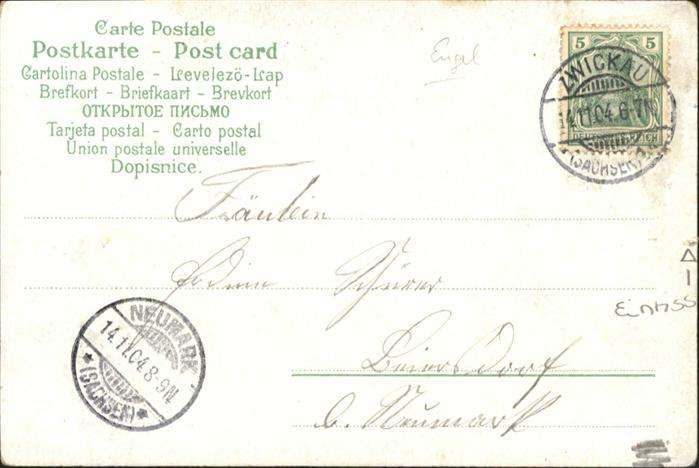 Carte Postale
Postkarte - Post card
Cartolina Postale - Levelező-Lap
Brefkort - Briefkaart - Brevkort
ОТКРЫТОЕ ПИСЬМО
Tarjeta postal - Carto postal
Union postale universelle
Dopisnice.
Engel
5 5
ZWICKAU
14.11.04.6-7N
DEUTSCHES REICH
(SACHSEN)
Fräulein
Schürer
Beiersdorf
b. Neumark
NEUMARK
14.11.04.8-9N
*(SACHSEN)*